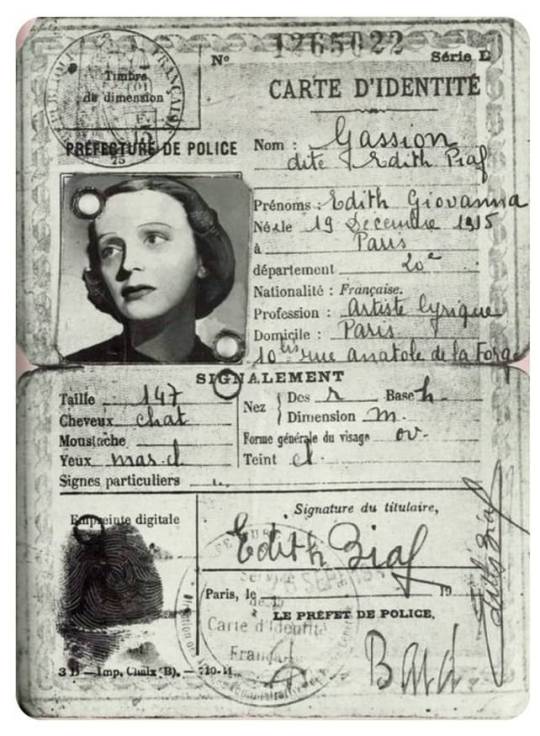 Nº 1265022 Série E
CARTE D'IDENTITÉ
RÉPUBLIQUE FRANÇAISE
Timbre
de dimension
PRÉFECTURE DE POLICE
Nom : Gassion
dite Edith Piaf
Prénoms : Edith Giovanna
Né le 19 Décembre 1915
à Paris
département 20e
Nationalité : Française.
Profession : artiste lyrique
Domicile : Paris
10 bis rue anatole de la Forge
SIGNALEMENT
Taille 147
Cheveux chat
Moustache
Yeux mar. cl.
Signes particuliers
Nez
Dos r Base h.
Dimension m.
Forme générale du visage ov.
Teint cl.
Empreinte digitale
Signature du titulaire,
Edith Piaf
Edith Piaf
Paris, le 19
LE PRÉFET DE POLICE,
Service
de la
Carte d'Identité
Française
3 D — Imp. Chaix (B). —